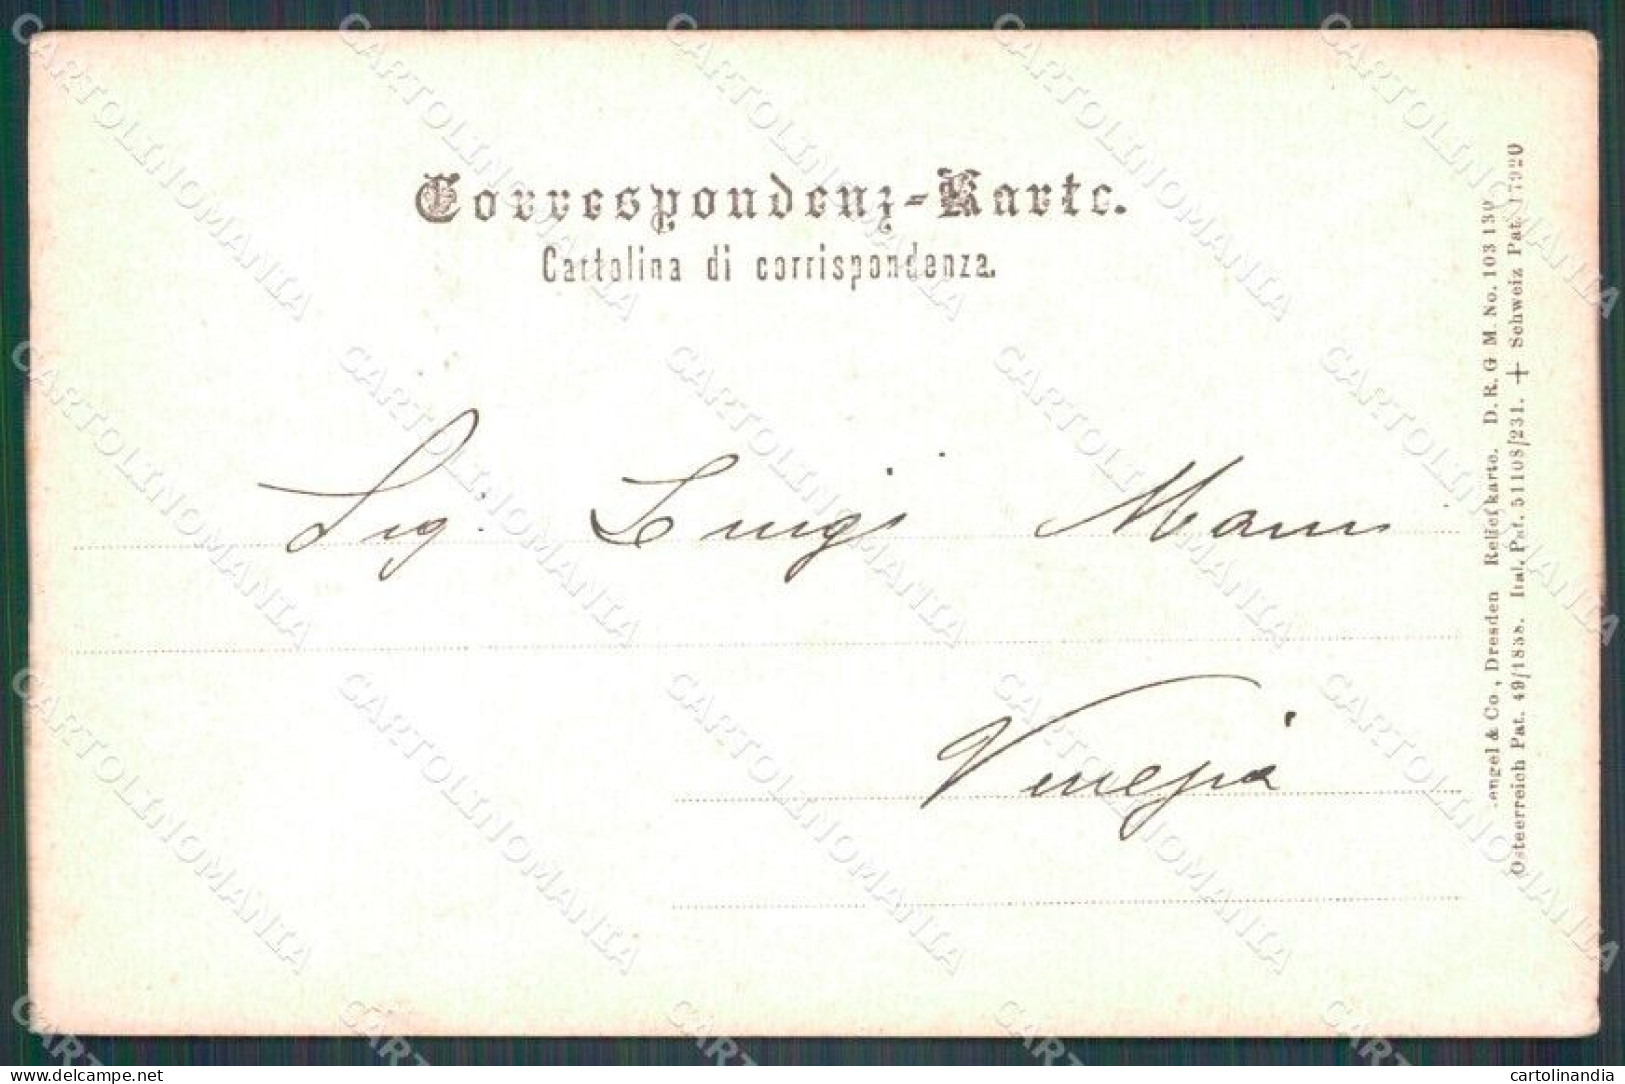 Correspondenz-Karte.
Cartolina di corrispondenza.
Sig. Luigi Mann
Venezia
engel & Co., Dresden Reliefkarte. D. R. G M. No. 103 130
Osteerreich Pat. 49/1888. Ital. Pat. 51108/231. + Schweiz Pat. 17920
CARTOLINOMANIA
delcampe.net
cartolinandia